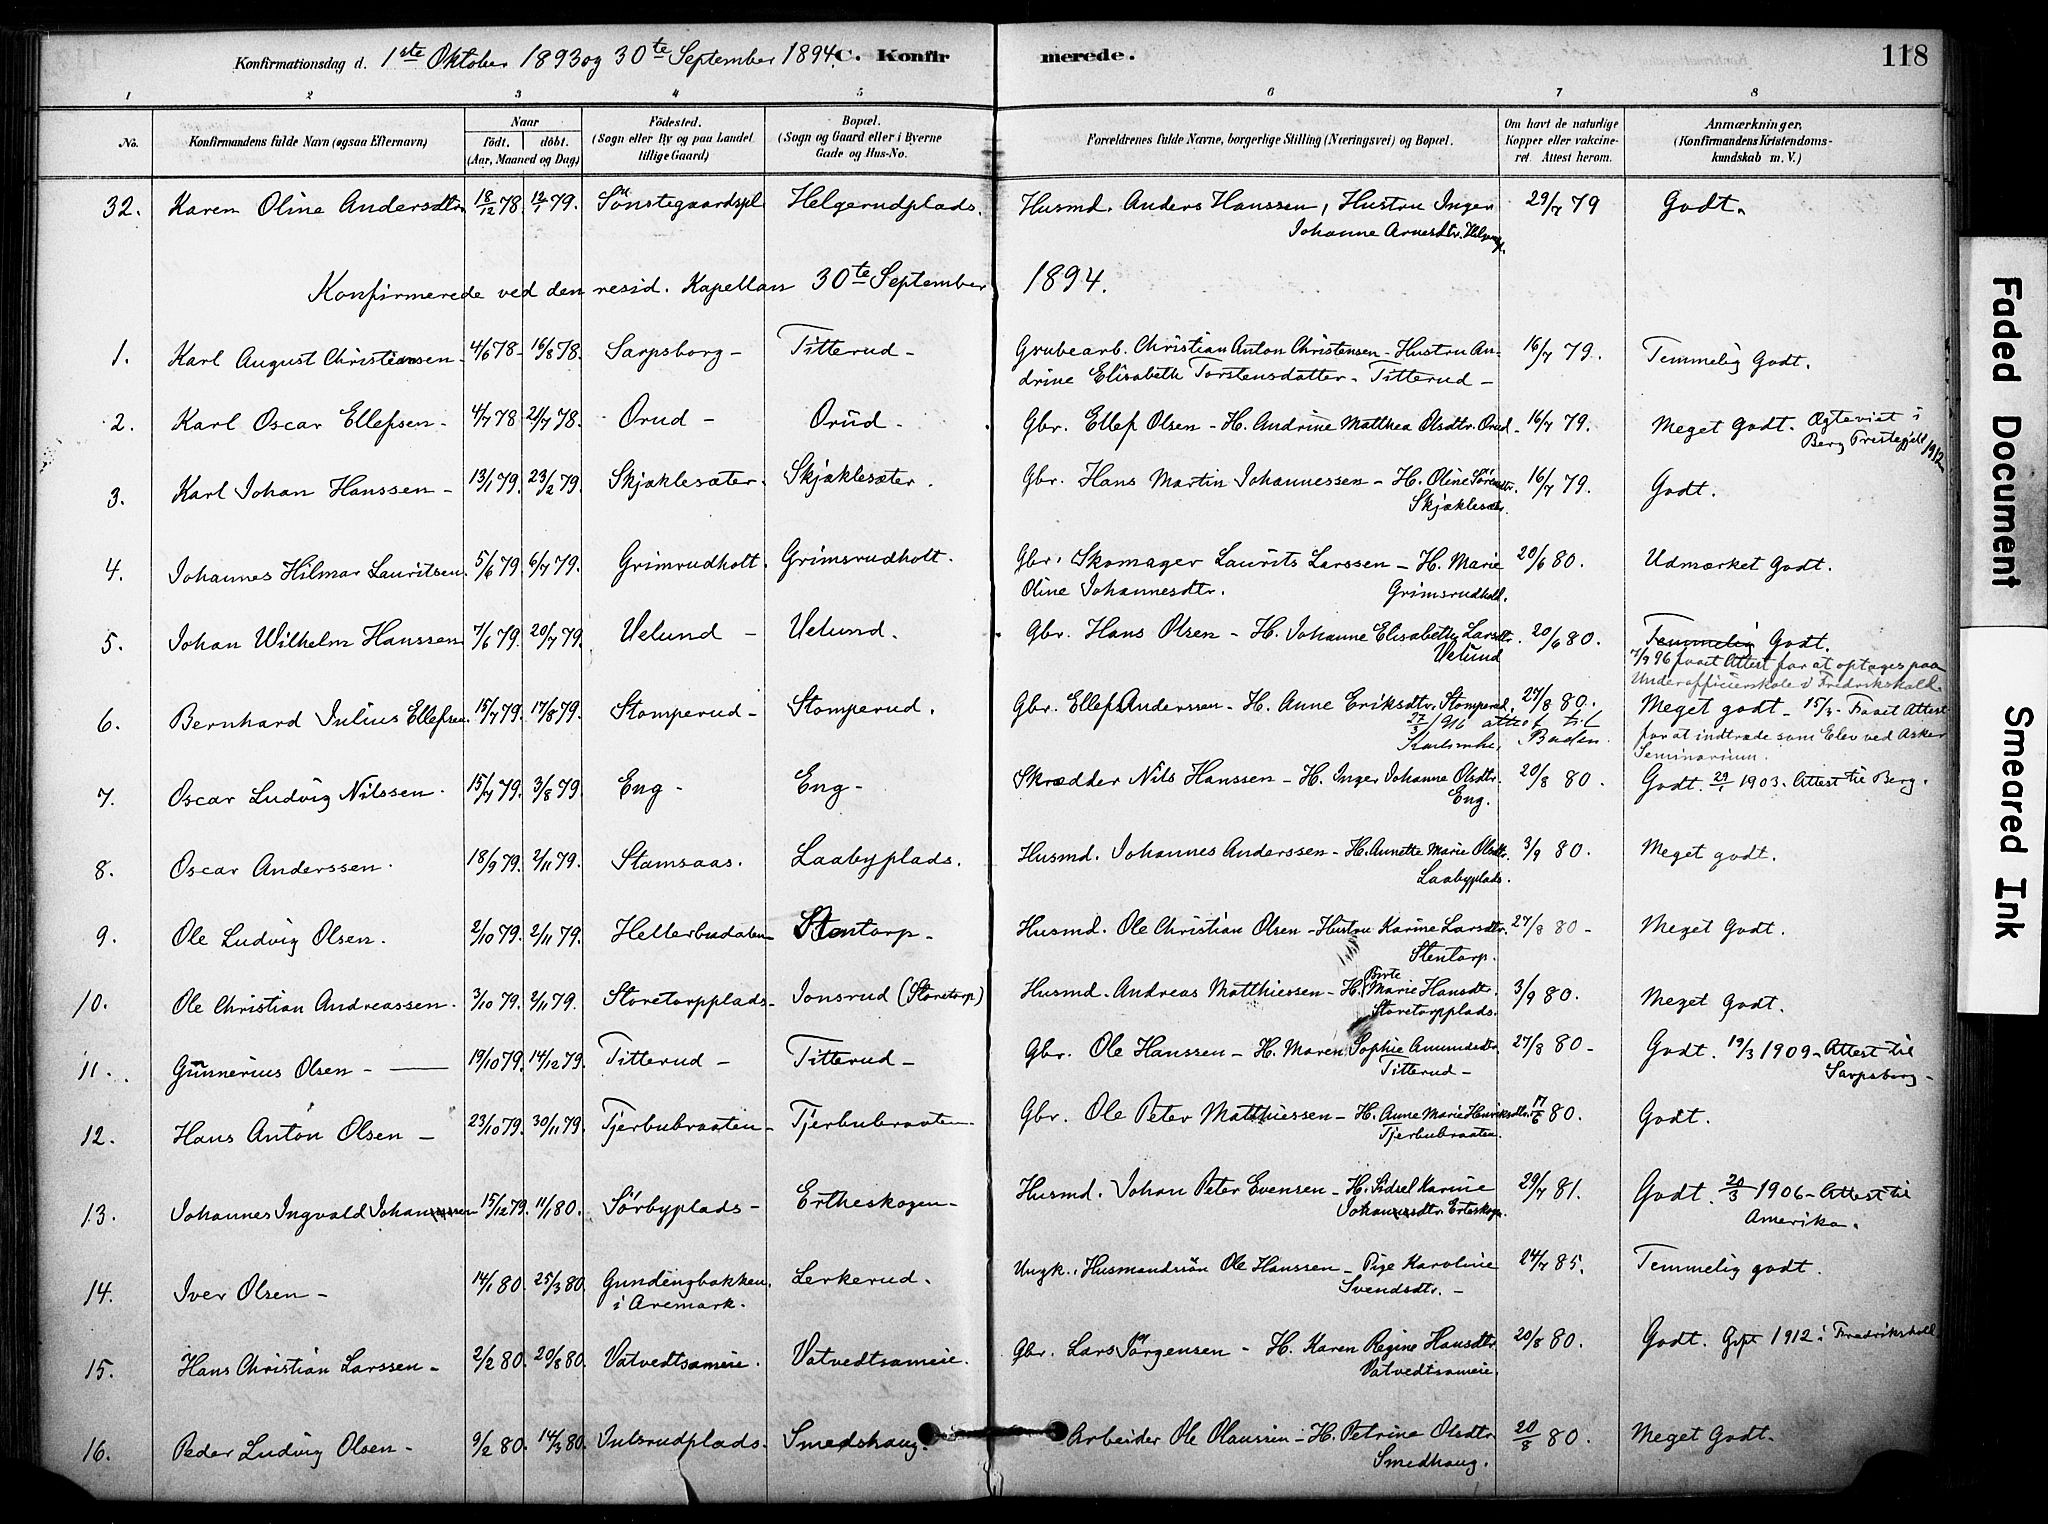 Konfirmationsdag d. 1ste Oktober 1893 og 30te September 1894. C. Konfirmerede. 118
1 2 3 4 5 6 7 8
No. Konfirmandens fulde Navn (ogsaa Efternavn) Naar født. døbt. (Aar, Maaned og Dag) Fødested. (Sogn eller By og paa Landet tillige Gaard) Bopæl. (Sogn og Gaard eller i Byerne Gade og Hus-No. Forældrenes fulde Navne, borgerlige Stilling (Næringsvei) og Bopæl. Om havt de naturlige Kopper eller vakcineret. Attest herom. Anmærkninger, (Konfirmandens Kristendomskundskab m. V.)
32. Karen Oline Andersdtr 18/12 78. 12/1 79. Sönstegaardspl Helgerudplads. Husmd. Anders Hanssen, Hustru Inger 29/7 79 Godt.
Johanne Arnesdtr.
Konfirmerede ved den resid. Kapellan 30te September 1894.
1. Karl August Christiansen - 4/6 78 - 16/8 78. Sarpsborg - Titterud - Grubearb. Christian Anton Christensen - Hustru An- 16/7 79. Temmelig Godt.
drine Elisabeth Torstensdatter - Titterud -
2. Karl Oscar Ellefsen - 4/7 78 21/7 78. Orud - Orud - Gbr. Ellef Olsen - H. Andrine Matthea Olsdtr. Orud - 16/7 79. Meget Godt. Egteviet i
Berg 1912
3. Karl Johan Hanssen - 13/1 79. 23/2 79. Skjæklesæter. Skjæklesæter. Gbr. Hans Martin Johannessen - H. Oline 16/7 79. Godt.
Skjæklesæt.
4. Johannes Hilmar Lauritsen. 5/6 79. 6/7 79. Grimrudholt. Grimsrudholt. Gbr. Skomager Laurits Larssen - H. Marie 20/6 80. Udmærket Godt.
Oline Johannesdtr. Grimsrudholt.
5. Johan Wilhelm Hanssen 7/6 79. 20/7 79. Velund - Velund. Gbr. Hans Olsen - H. Johanne Elisabeth Larsdtr. 20/6 80. Temmelig Godt.
Velund 7/9 96 faaet Attest for at optages paa
Underofficierskole i Fredrikshald.
6. Bernhard Julius Ellefsen. 15/7 79. 17/8 79. Stomperud - Stomperud. Gbr. Ellef Anderssen - H. Anne Eriksdtr. Stomperud. 27/8 80. Meget godt - 15/3 - Faaet Attest
27/3 1916 attest til for at indtræde som Elev ved Asker
Karlsruhe, Baden. Seminarium.
7. Oscar Ludvig Nilssen. 15/7 79. 3/8 79. Eng - Eng - Skrædder Nils Hanssen - H. Inger Johanne Olsdtr. 20/8 80. Godt. 29/1 1903. Attest til Berg.
Eng.
8. Oscar Anderssen. 18/9 79. 2/11 79. Stamsaas. Laabyplads. Husmd. Johannes Anderssen - H. Annette Marie Olsdtr. 3/9 80. Meget godt.
Laabyplads.
9. Ole Ludvig Olsen. 2/10 79. 2/11 79. Hellerbudalen Stentorp - Husmd. Ole Christian Olsen - Hustru Karine Larsdtr. 27/8 80 - Meget Godt.
Stentorp.
10. Ole Christian Andreassen. 3/10 79. 2/11 79. Storetorpplads - Jonsrud (Storetorp) Husmd. Andreas Matthiessen - H. Birte Marie Hansdtr. 3/9 80. Meget Godt.
Storetorpplads.
11. Gunnerius Olsen - 19/10 79. 14/12 79. Titterud - Titterud - Gbr. Ole Hanssen - H. Maren Sophie Amundsdtr 27/8 80 - Godt. 19/3 1909 - Attest til
Titterud - Sarpsborg -
12. Hans Anton Olsen - 23/10 79. 30/11 79. Tjerbubraaten - Tjerbubraaten - Gbr. Ole Peter Matthiessen - H. Anne Marie Henriksdtr. 17/6 80. Godt.
Tjerbubraaten.
13. Johannes Ingvald 15/12 79. 11/1 80. Sörbyplads - Ertheskogen - Husmd. Johan Peter Evensen - H. Sidsel Karine 29/7 81. Godt. 20/3 1906 - Attest til
Amerika.
14. Iver Olsen - 14/1 80. 25/3 80. Gundengbakken. Lerkerud. Ungk. Husmandssön Ole Hanssen - Pige Karoline 24/7 85. Temmelig godt.
i Aremark. Svendsdtr. -
15. Hans Christian Larssen - 2/2 80. 20/8 80. Vatvedtsameie. Vatvedtsameie. Gbr. Lars Jörgensen - H. Karen Regine Hansdtr 20/8 80. Godt. Gift 1912 i Fredrikshald
Vatvedtsameie.
16. Peder Ludvig Olsen - 9/2 80. 14/3 80. Intsrudplads. Smedshaug. Arbeider Ole Olaussen - H. Petrine Olsdtr 20/8 80. Meget Godt.
Smedhaug.
Faded Document
Smeared Ink